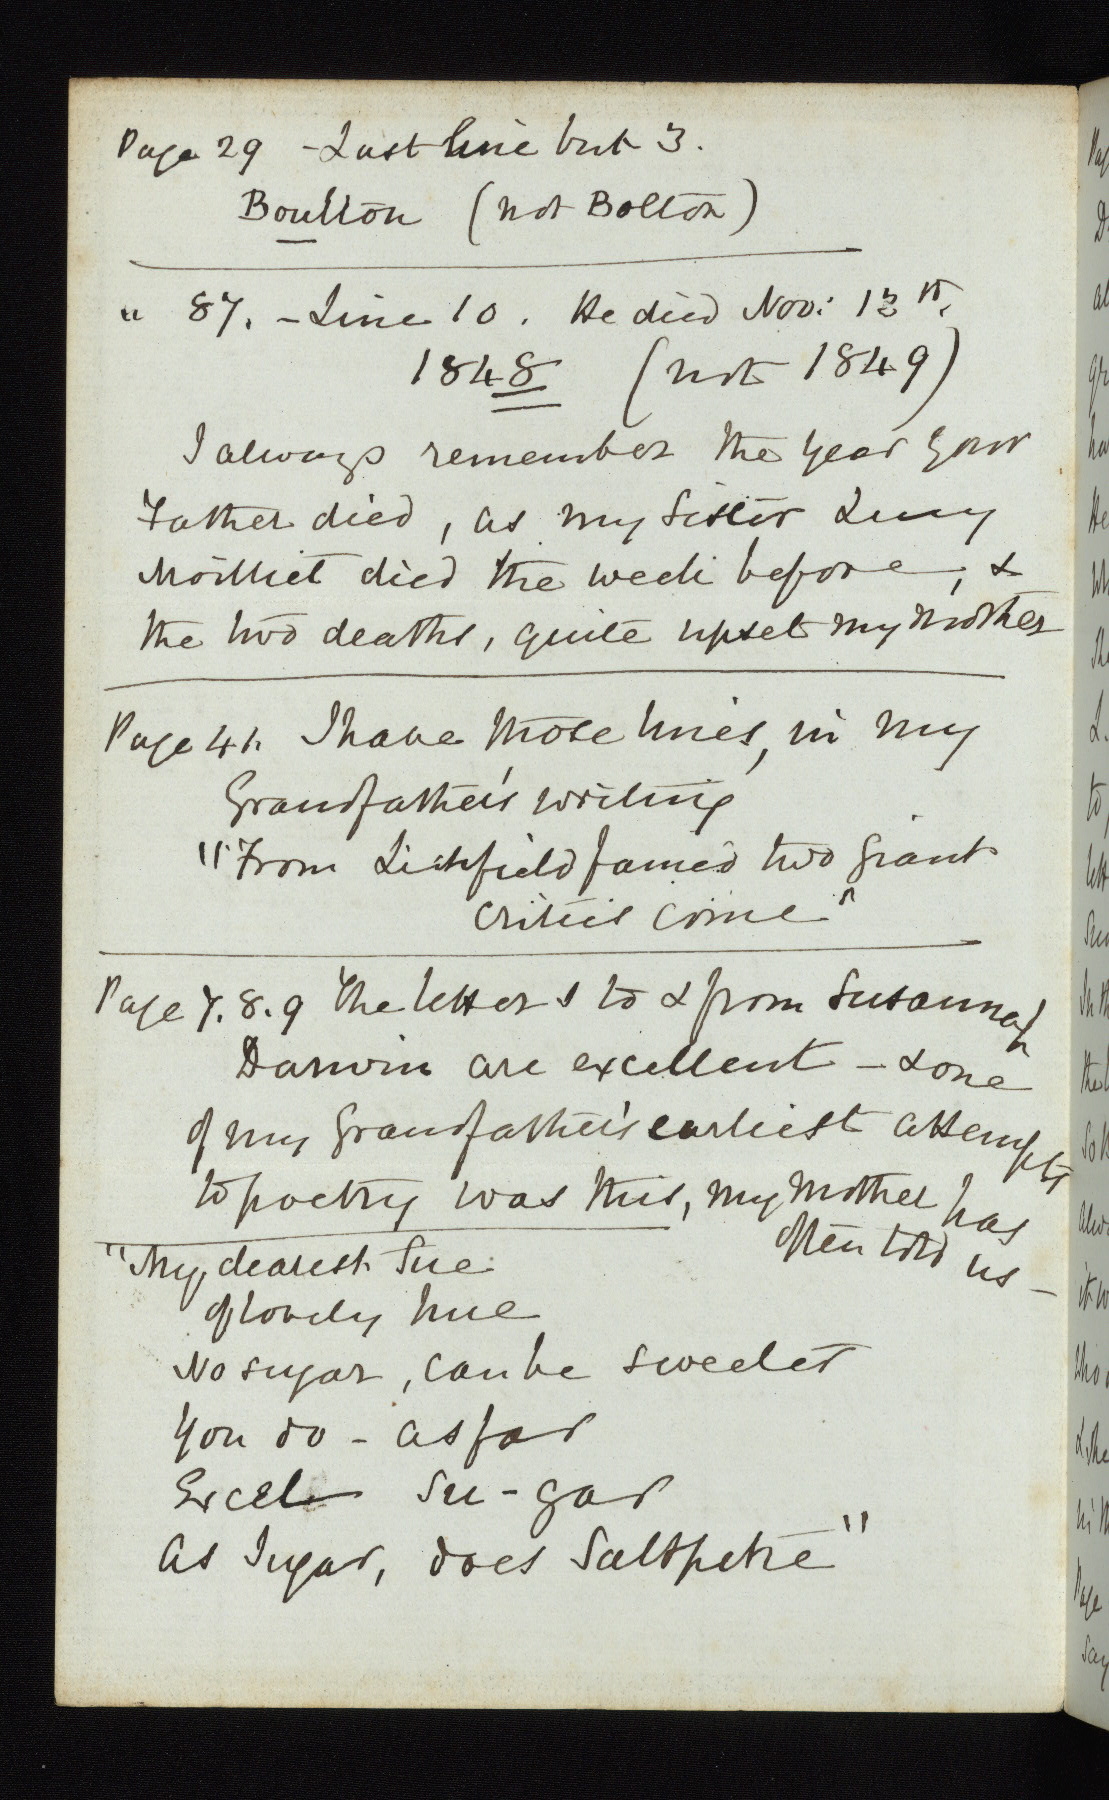 Page 29 - Last line but 3.
Boulton (not Bolton)
" 87. - Line 10. He died Nov: 13th.
1848 (not 1849)
I always remember the year your
Father died, as my Sister Lucy
Moilliet died the week before, &
the two deaths, quite upset my Mother
Page 41. I have those lines, in my
Grandfather's writing
"From Lichfield famed two giant
critics come"
Page 7.8.9 The letters to & from Susannah
Darwin are excellent - & one
of my Grandfather's earliest attempts
to poetry was this, my Mother has
often told us -
"My dearest Sue
of lovely hue
No sugar, can be sweeter
You do - as far
Excel Su-gar
As Sugar, does Saltpetre"